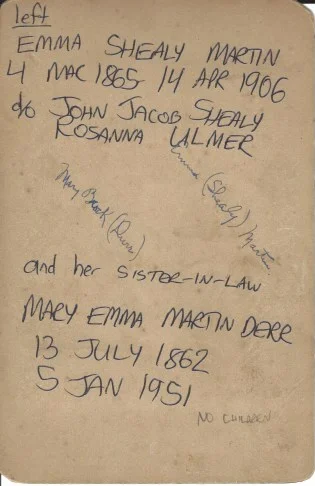 left
EMMA SHEALY MARTIN
4 MAC 1865 - 14 APR 1906
d/o JOHN JACOB SHEALY
ROSANNA ULMER
Emma (Shealy) Martin
Mary (Durr)
and her SISTER-IN-LAW
MARY EMMA MARTIN DERR
13 JULY 1862
5 JAN 1951
NO CHILDREN